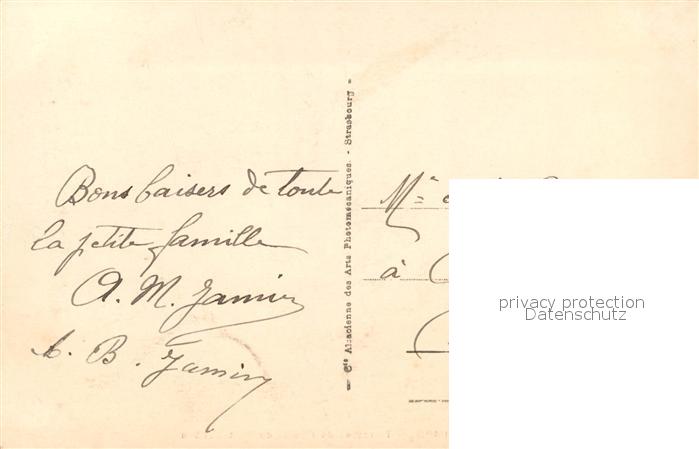 Bons baisers de toute
la petite famille
A. M. Jamin
B. Jamin
- Cie Alsacienne des Arts Photomécaniques. - Strasbourg -
à
privacy protection
Datenschutz